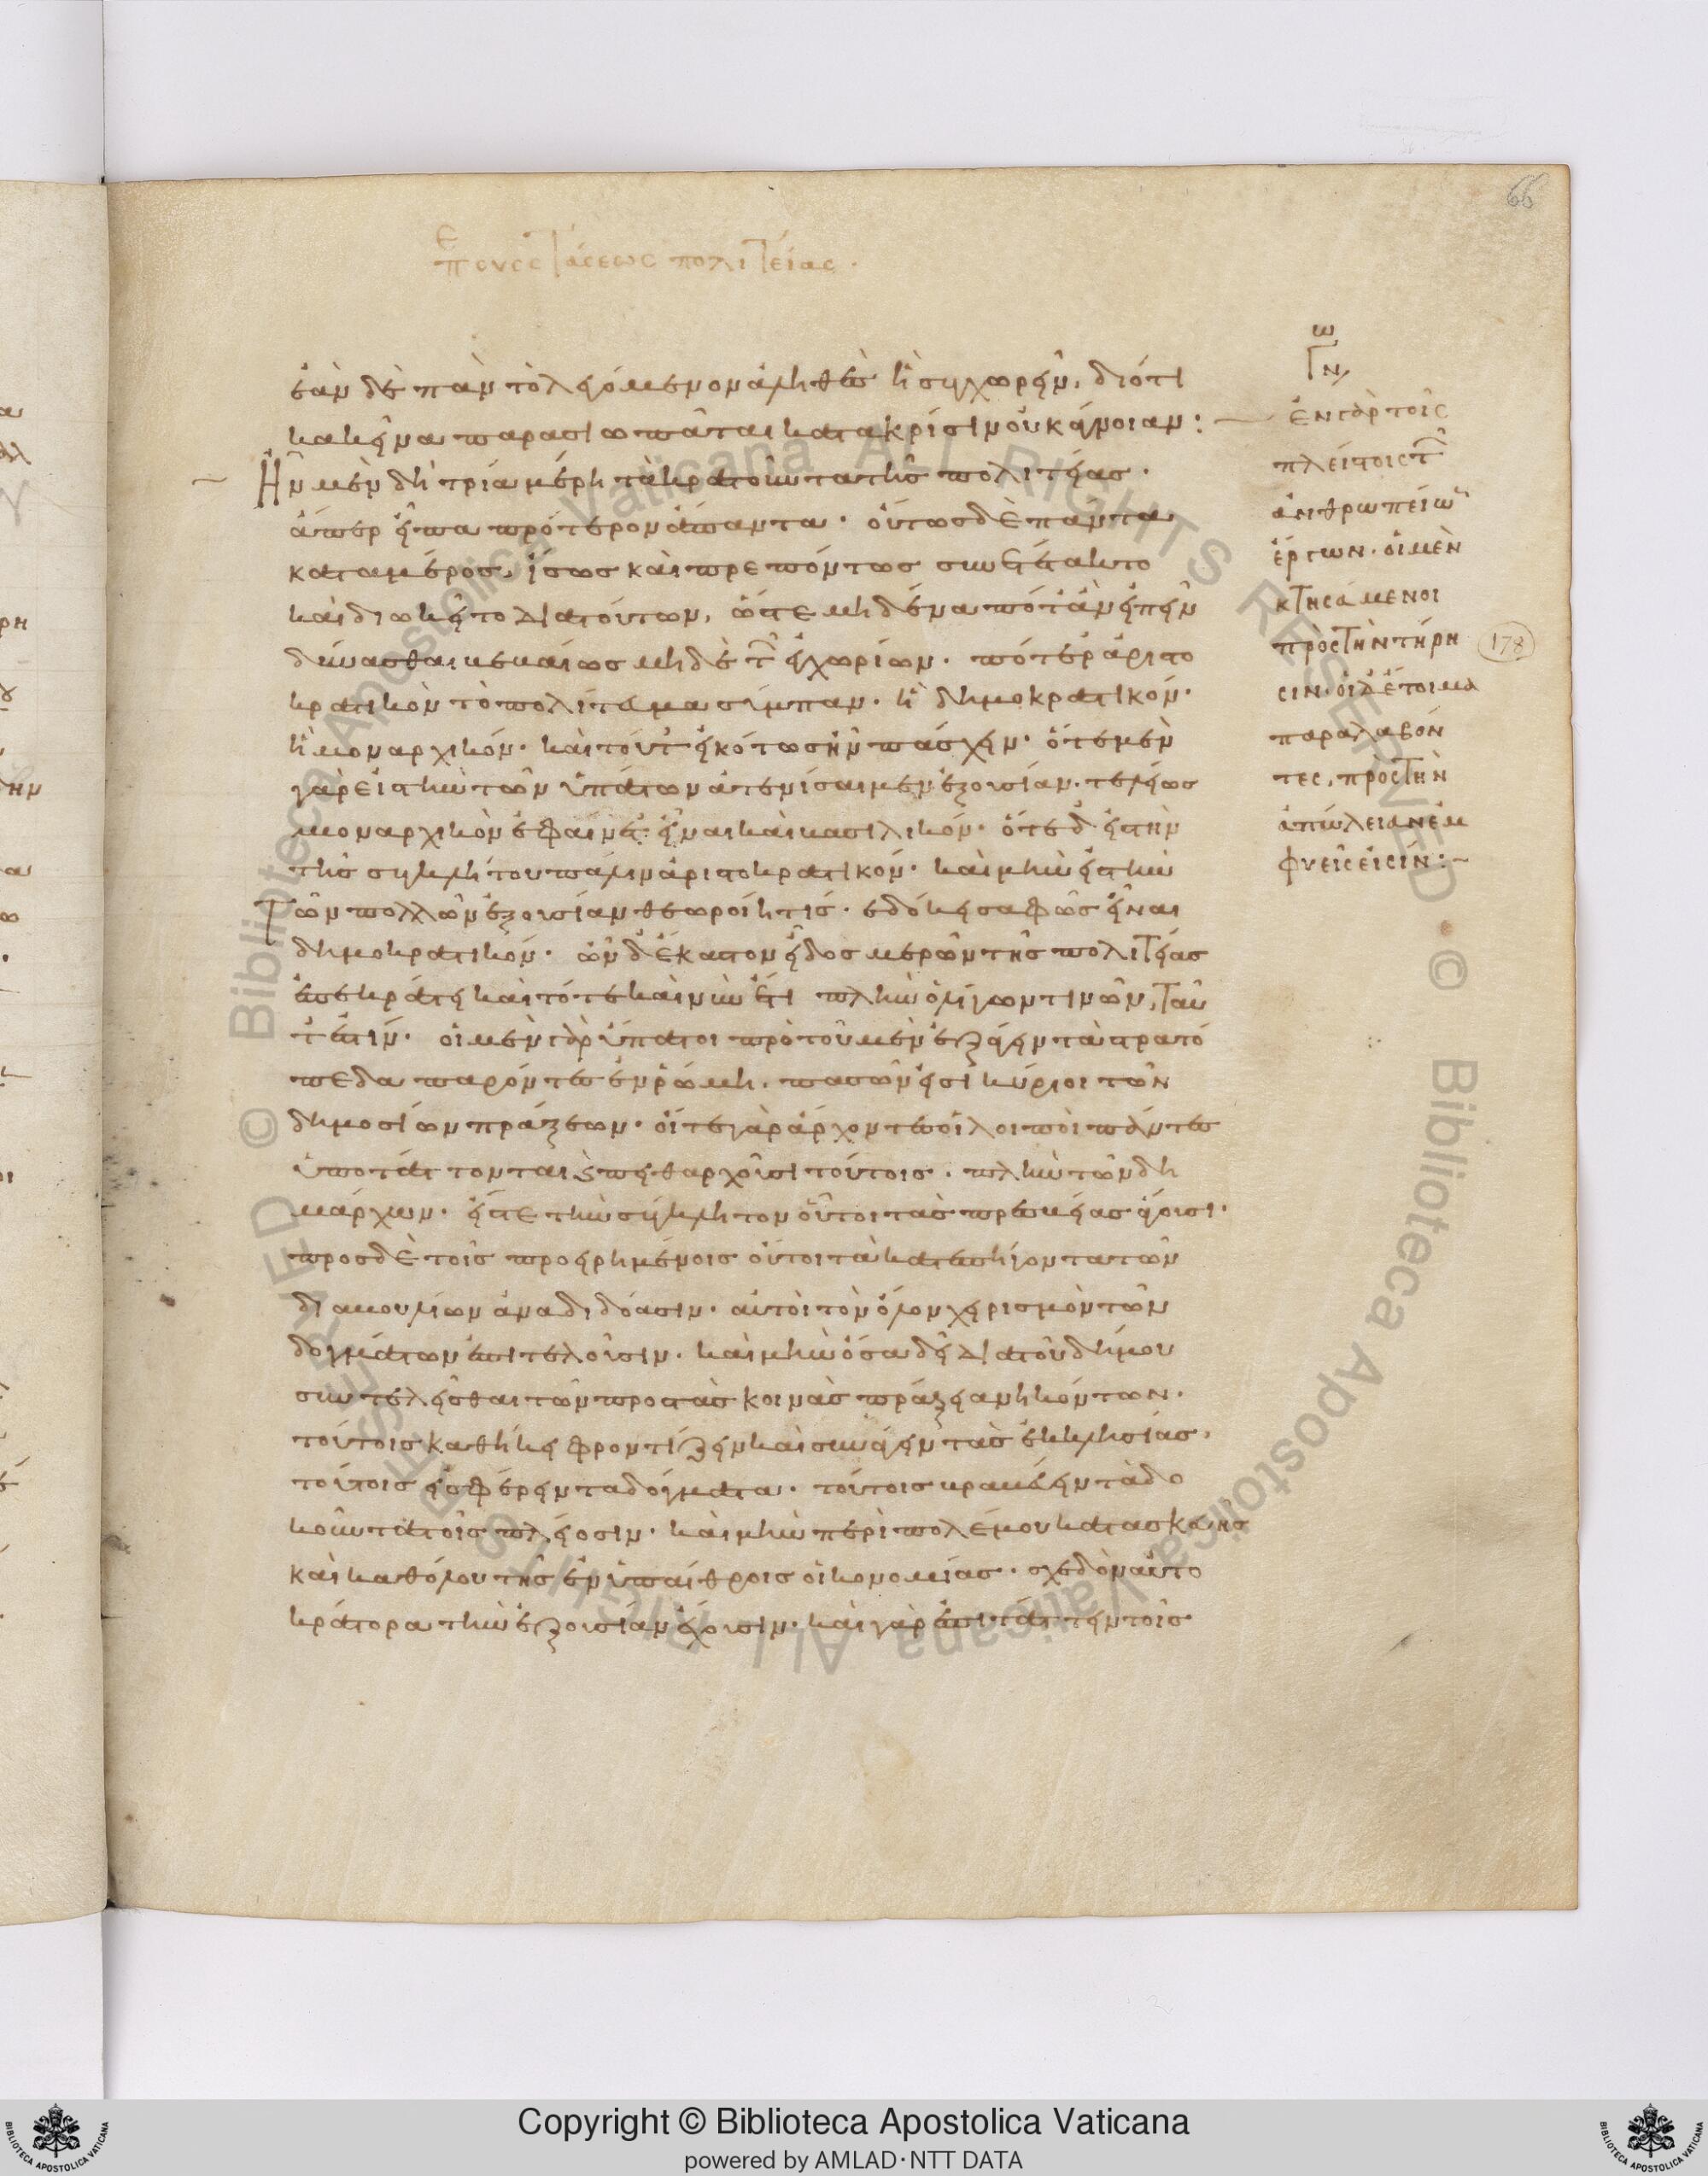 66
περὶ συστάσεως πολιτείας.
ἐὰν δὲ πᾶν τὸ λεγόμενον ἀληθὲς ᾖ συγχωρεῖν, διότι
κἀκεῖνα παρασιωπᾶται κατὰ κρίσιν οὐ κατ' ἄγνοιαν:
Ἦν μὲν δὴ τρία μέρη τὰ κρατοῦντα τῆς πολιτείας.
ἅπερ εἶπα πρότερον ἅπαντα. οὕτως δὲ πάντα
κατὰ μέρος, ἴσως καὶ πρεπόντως συνετέτακτο
καὶ διῳκεῖτο διὰ τούτων, ὥστε μηδένα ποτ' ἂν εἰπεῖν
δύνασθαι βεβαίως μηδὲ τῶν ἐγχωρίων. πότερ' ἀριστο
κρατικὸν τὸ πολίτευμα σύμπαν. ἢ δημοκρατικόν.
ἢ μοναρχικόν. καὶ τοῦτ' εἰκότως ἦν πάσχειν. ὅτε μὲν
γὰρ εἰς τὴν τῶν ὑπάτων ἀτενίσαιμεν ἐξουσίαν. τελείως
μοναρχικὸν ἐφαίνετ' εἶναι καὶ βασιλικόν. ὅτε δ' εἰς τὴν
τῆς συγκλήτου πάλιν ἀριστοκρατικόν. καὶ μὴν εἰς τὴν
τῶν πολλῶν ἐξουσίαν θεωροίη τις. ἐδόκει σαφῶς εἶναι
δημοκρατικόν. ὧν δ' ἕκαστον εἶδος μερῶν τῆς πολιτείας
ἐπεκράτει καὶ τότε καὶ νῦν ἔτι πλὴν ὀλίγων τινῶν, ταῦ
τ' ἐστίν. οἱ μὲν γὰρ ὕπατοι πρὸ τοῦ μὲν ἐξάγειν τὰ στρατό
πεδα παρόντες ἐν ῥώμῃ. πασῶν εἰσι κύριοι τῶν
δημοσίων πράξεων. οἵ τε γὰρ ἄρχοντες οἱ λοιποὶ πάντες
ὑποτάττονται καὶ πειθαρχοῦσι τούτοις. πλὴν τῶν δη
μάρχων. εἴς τε τὴν σύγκλητον οὗτοι τὰς πρεσβείας ἄγουσι.
πρὸς δὲ τοῖς προειρημένοις οὗτοι τὰ κατεπείγοντα τῶν
διαβουλίων ἀναδιδόασιν. αὐτοὶ τὸν ὅλον χειρισμὸν τῶν
δογμάτων ἐπιτελοῦσιν. καὶ μὴν ὅσα δεῖ διὰ τοῦ δήμου
συντελεῖσθαι τῶν πρὸς τὰς κοινὰς πράξεις ἀνηκόντων.
τούτοις καθήκει φροντίζειν καὶ συνάγειν τὰς ἐκκλησίας,
τούτοις εἰσφέρειν τὰ δόγματα. τούτοις βραβεύειν τὰ δο
κοῦντα τοῖς πλείοσιν. καὶ μὴν περὶ πολέμου κατασκευῆς
καὶ καθόλου τῆς ἐν ὑπαίθροις οἰκονομίας. σχεδὸν αὐτο
κράτορα τὴν ἐξουσίαν ἔχουσιν. καὶ γὰρ ἐπιτάττειν τοῖς
ΓΝω
ἐν γὰρ τοῖς
πλείστοις τῶν
ἀνθρωπείων
ἔργων. οἱ μὲν
κτησάμενοι
πρὸς τὴν τήρη
σιν. οἱ δ' ἕτοιμα
παραλαβόν
τες, πρὸς τὴν
ἀπώλειαν εὐ
φυεῖς εἰσίν:-
178
Copyright © Biblioteca Apostolica Vaticana
powered by AMLAD·NTT DATA